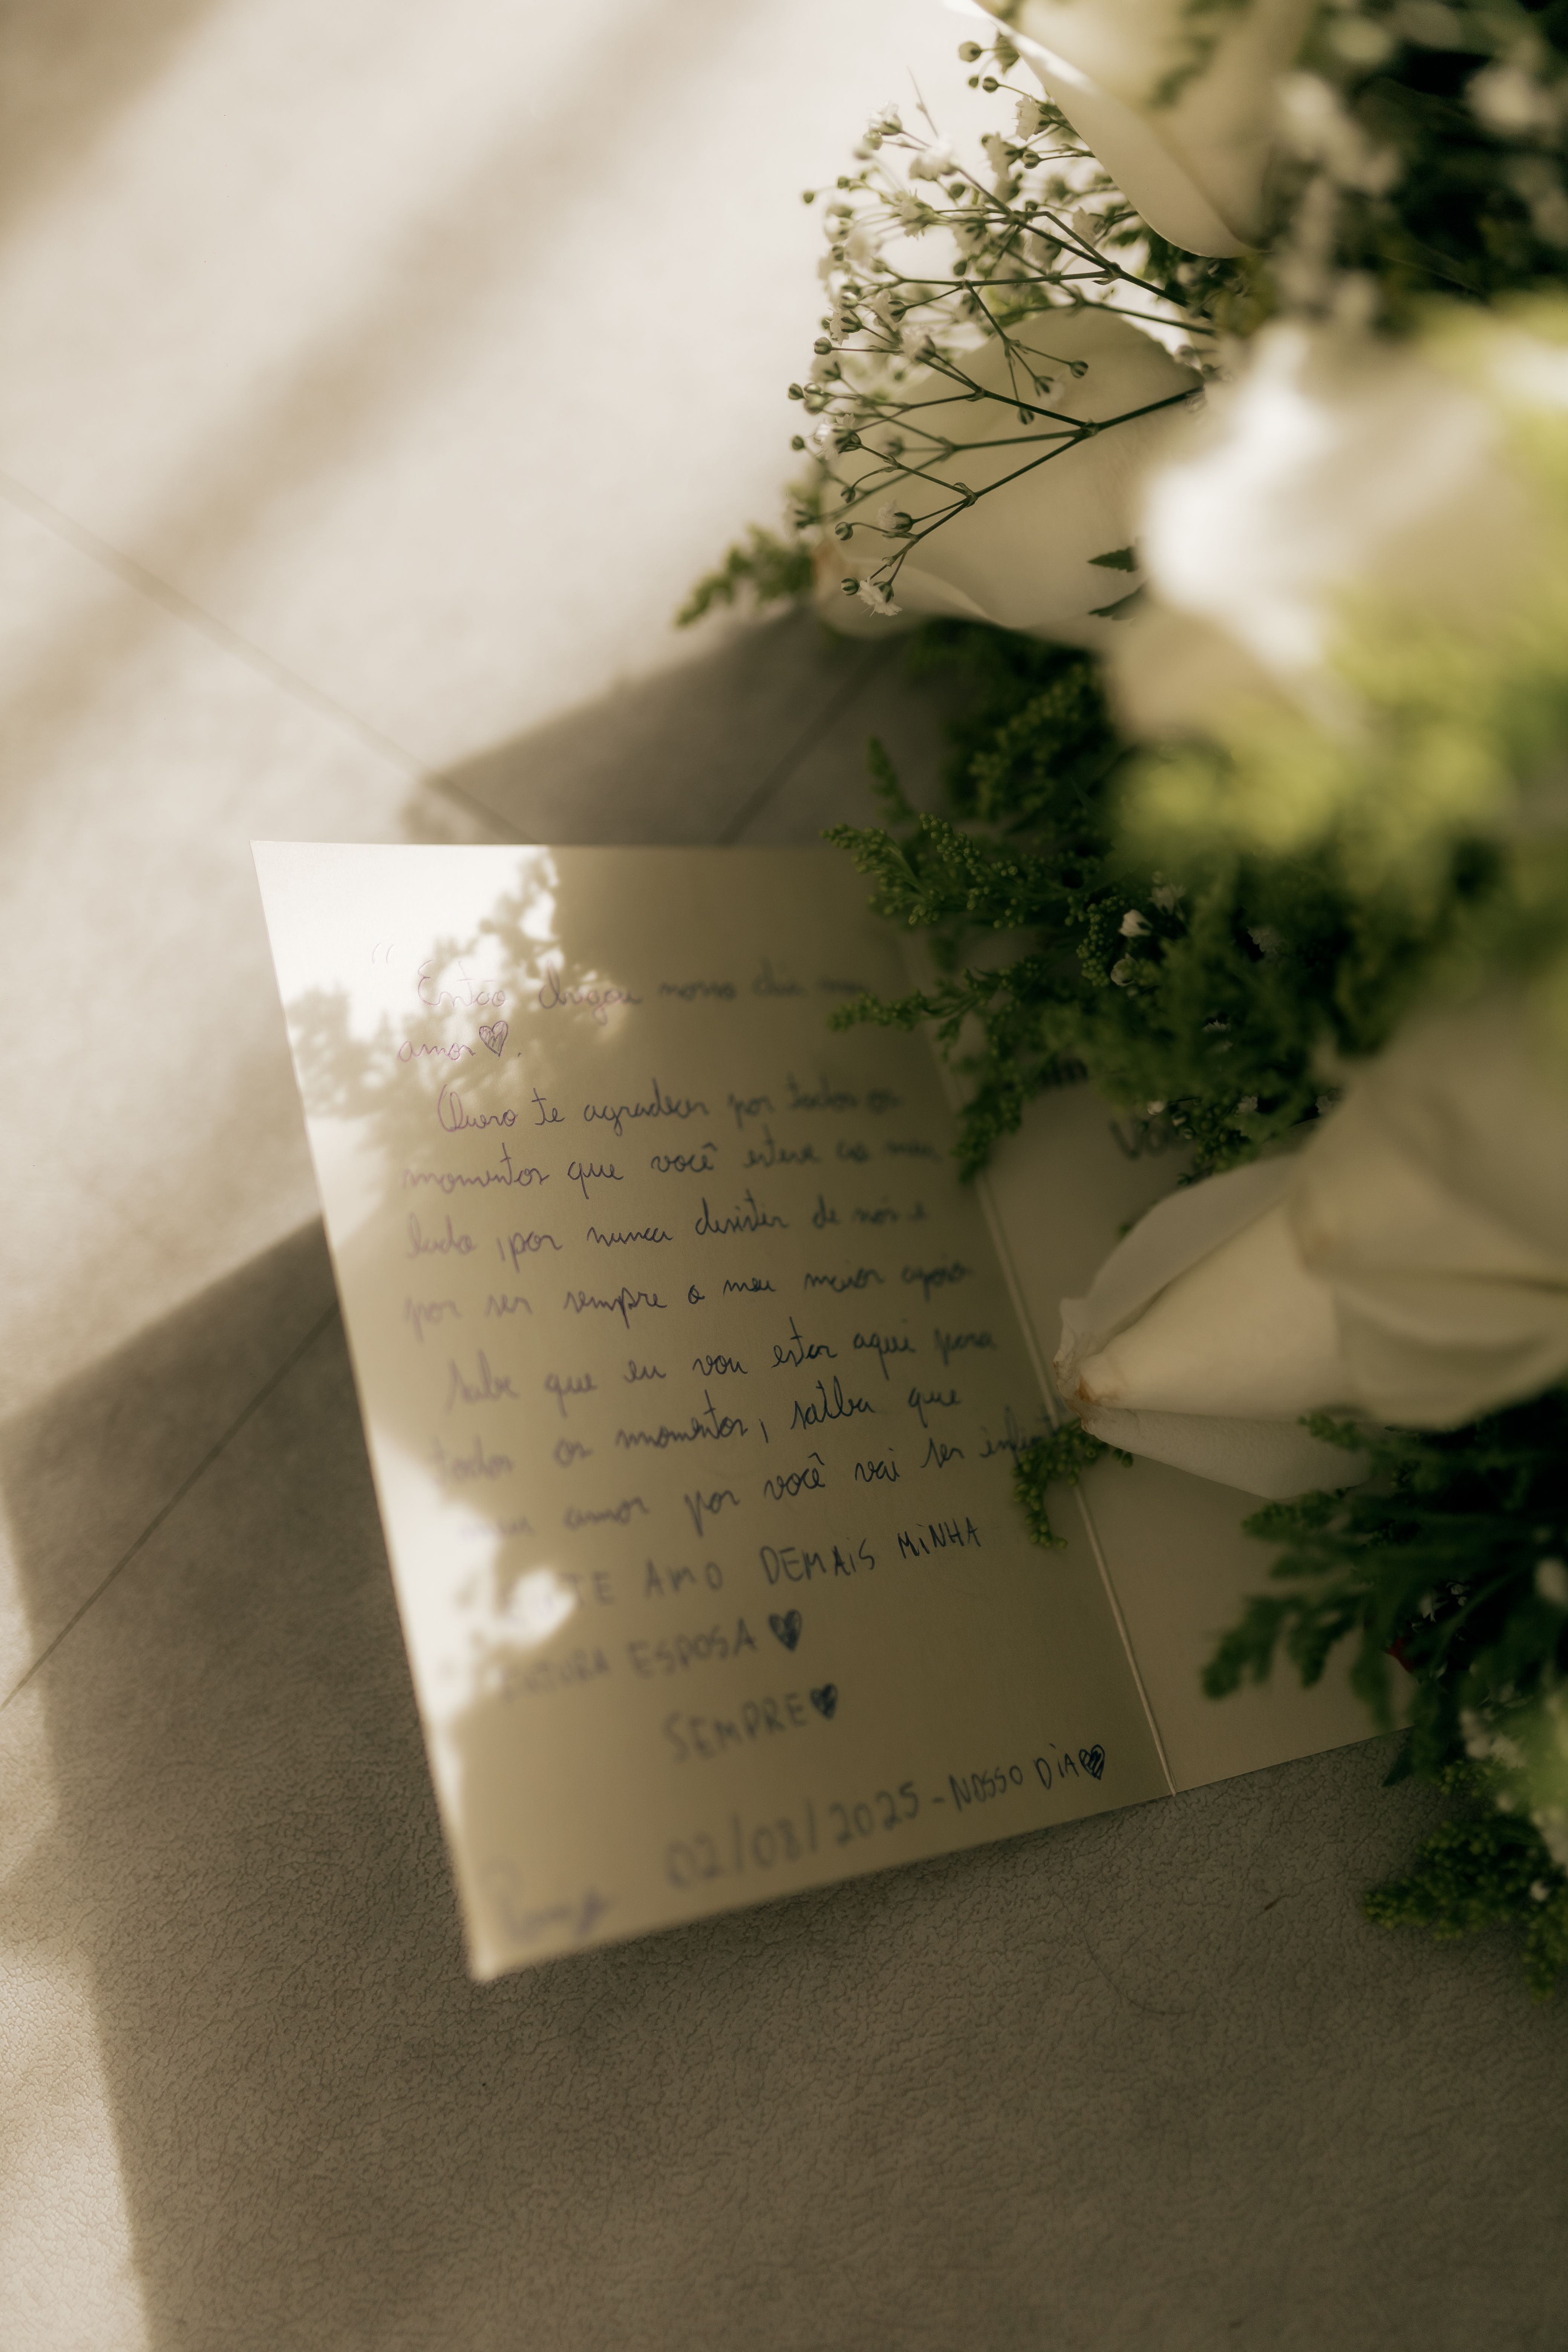 “ Então chegou nosso dia meu
amor♥.
Quero te agradecer por todos os
momentos que você esteve ao meu
lado, por nunca desistir de nós e
por ser sempre o meu maior apoio
Sabe que eu vou estar aqui para
todos os momentos, saiba que
meu amor por você vai ser
TE AMO DEMAIS MINHA
FUTURA ESPOSA ♥
SEMPRE♥
02/08/2025 - NOSSO DIA♥